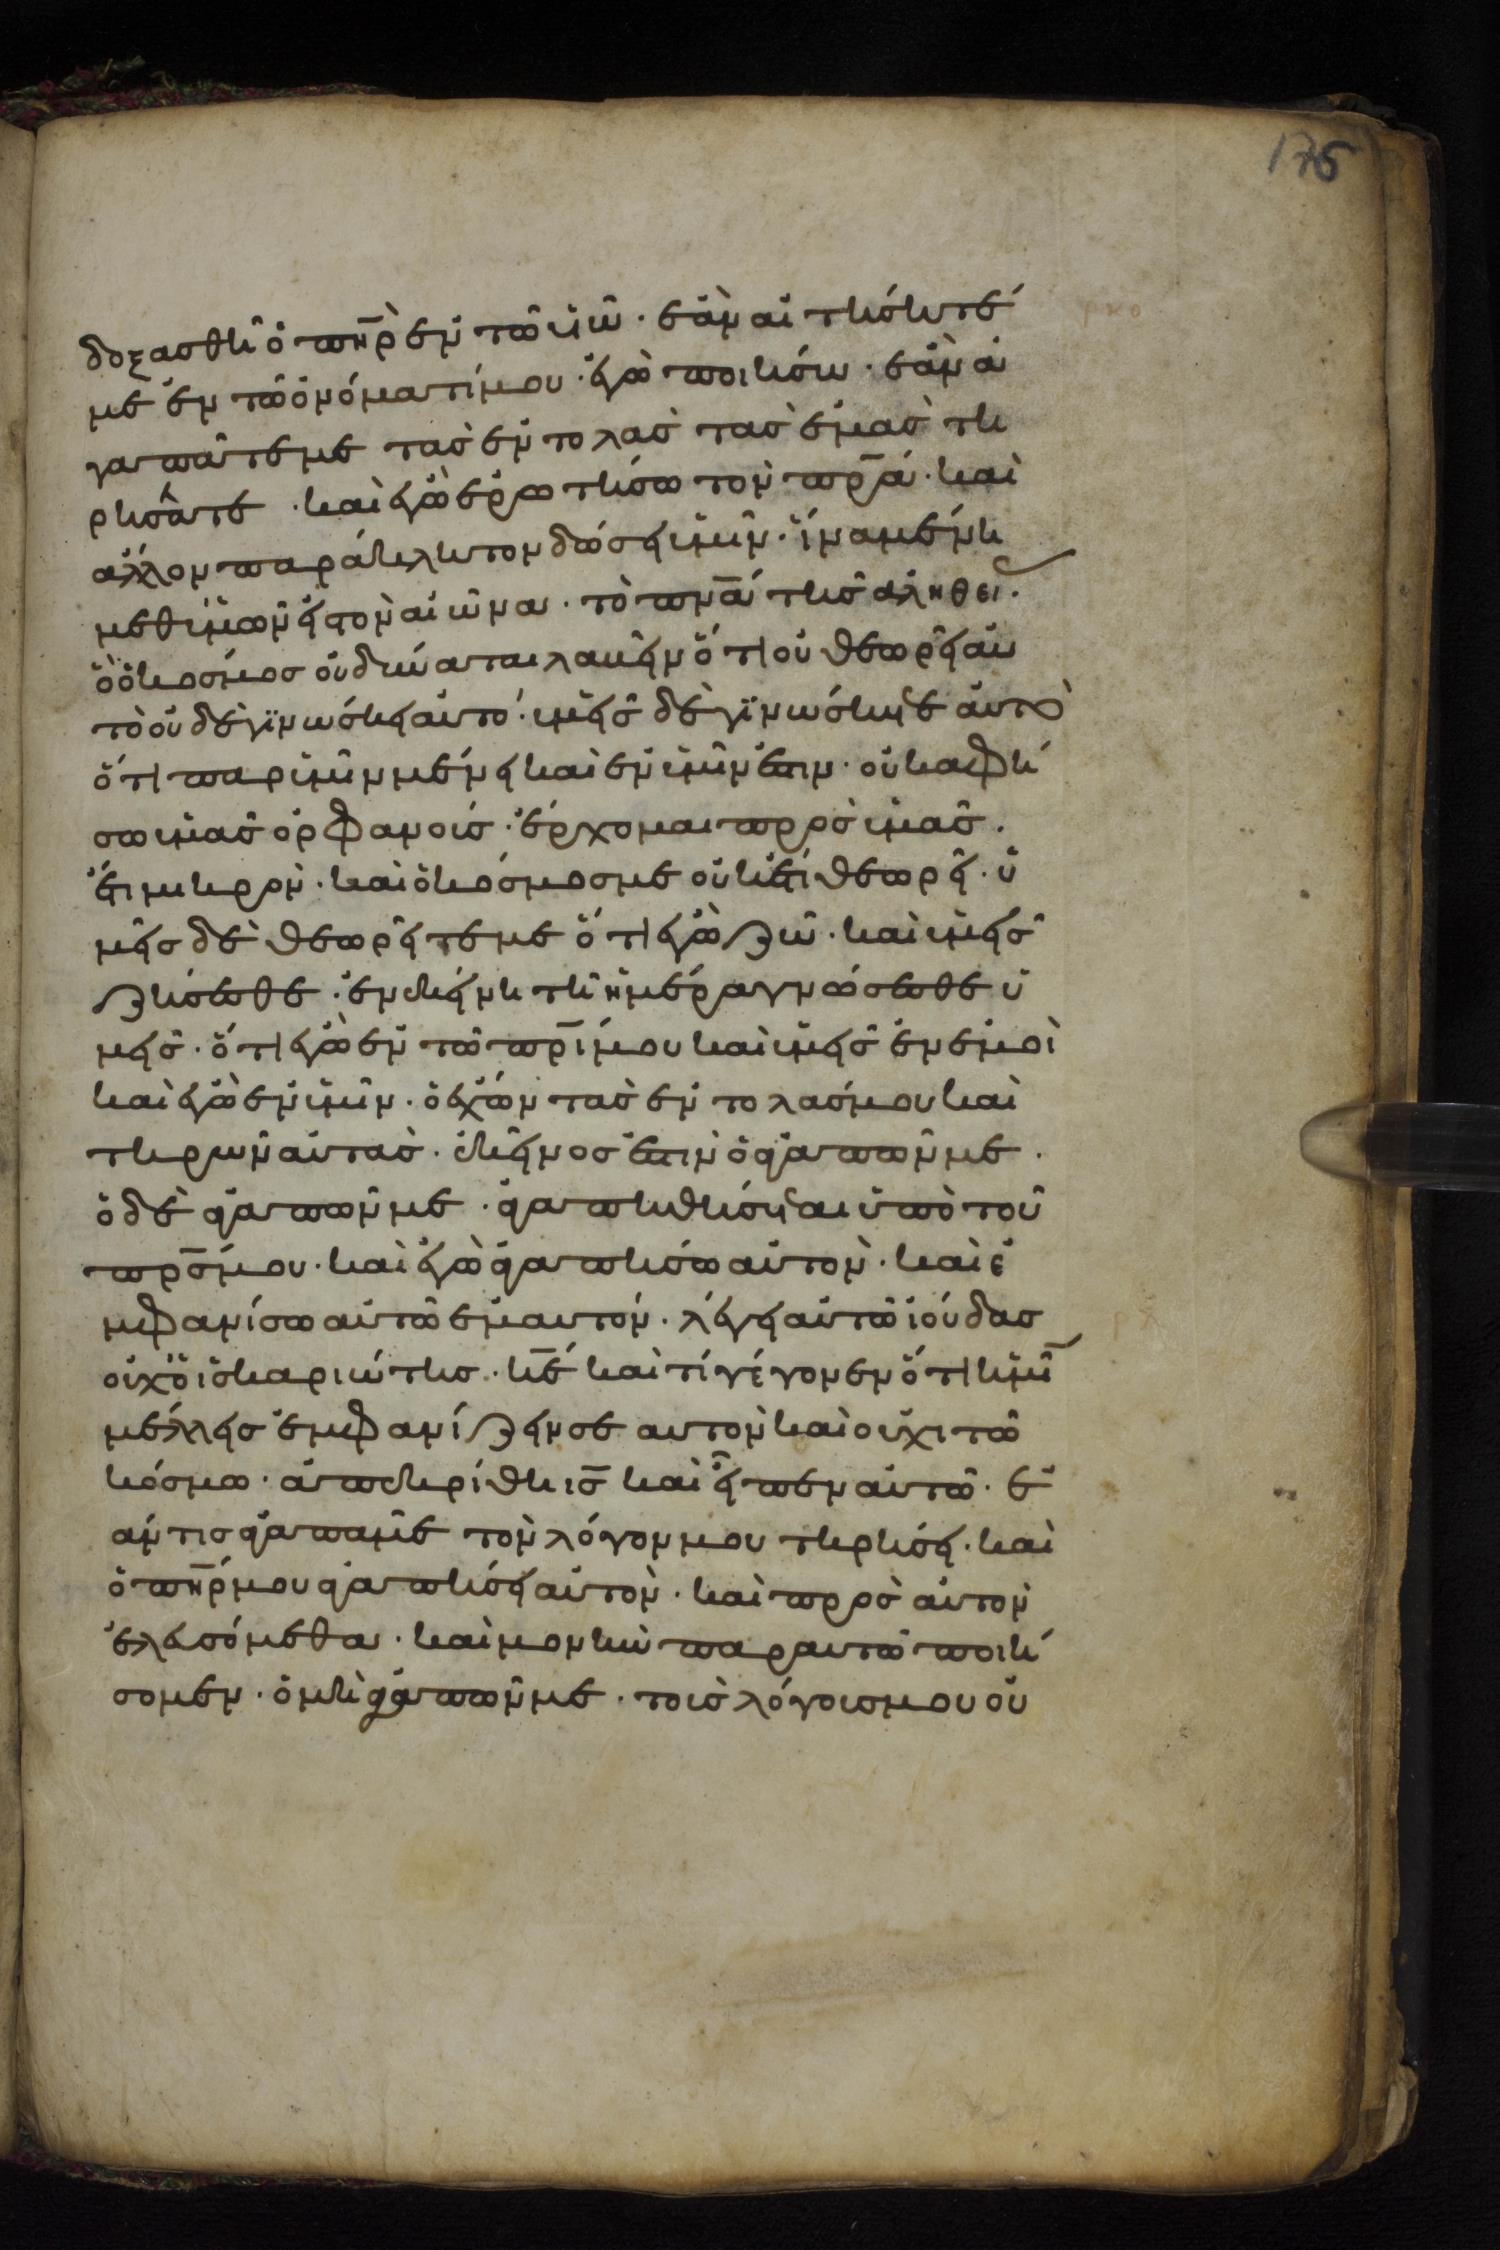 175
δοξασθῆ ὁ πη̅ρ ἐν τῶ υἱῶ · ἐὰν αἰτήσητέ
με ἐν τῶ ὀνόματί μου · ἐγὼ ποιήσω · ἐὰν ἀ
γαπᾶτε με τὰς ἐντολὰς τὰς ἐμὰς τη
ρήσατε · καὶ ἐγὼ ἐρωτήσω τὸν πρ̅α · καὶ
ἄλλον παράκλητον δώσει ὑμῖν · ἵνα μένη
μεθ ὑμῶν εἰς τὸν αἰῶνα · τὸ πνα̅ τῆς ἀληθεί ·
ὃ ὁ κόσμος οὐ δύναται λαβεῖν ὅτι οὐ θεωρεῖ αὐ
τὸ οὐδὲ γϊνώσκει αὐτό · ὑμεῖς δὲ γϊνώσκετε αὐτὸ
ὅτι παρ ὑμῖν μένει καὶ ἐν ὑμῖν ἐστιν · οὐκ ἀφή
σω ὑμᾶς ὀρφανούς · ἔρχομαι πρὸς ὑμᾶς ·
ἔτι μικρὸν · καὶ ὁ κόσμος με οὐκ ἔτι θεωρεῖ · ὑ
μεῖς δὲ θεωρεῖτε με ὅτι ἐγὼ ζῶ · καὶ ὑμεῖς
ζήσεσθε · ἐν ἐκείνη τῆ ἡμέρα γνώσεσθε ὑ
μεῖς · ὅτι ἐγὼ ἐν τῶ πρ̅ι μου καὶ ὑμεῖς ἐν ἐμοὶ
καὶ ἐγὼ ἐν ὑμῖν · ὁ ἔχων τὰς ἐντολάς μου καὶ
τηρῶν αὐτὰς · ἐκεῖνος ἐστιν ὁ ἀγαπῶν με ·
ὁ δὲ ἀγαπῶν με · ἀγαπηθήσεται ὑπὸ τοῦ
πρ̅ς μου · καὶ ἐγὼ ἀγαπήσω αὐτὸν · καὶ ἐ
μφανίσω αὐτῶ ἐμαυτόν · λέγει αὐτῶ ἰούδας
οὐχ ὁ ἰσκαριώτης · κε̅ καὶ τί γέγονεν ὅτι ἡμῖ
μέλλεις ἐμφανίζειν σεαυτὸν καὶ οὐχι τῶ
κόσμω · ἀπεκρίθη ις̅ καὶ εἶπεν αὐτῶ · ἐ
άν τις ἀγαπᾶ με τὸν λόγον μου τηρήσει · καὶ
ὁ πη̅ρ μου ἀγαπήσει αὐτὸν · καὶ πρὸς αὐτὸν
ἐλευσόμεθα · καὶ μονὴν παρ αυτῶ ποιή
σομεν · ὁ μὴ ἀγαπῶν με · τοὺς λόγους μου οὐ